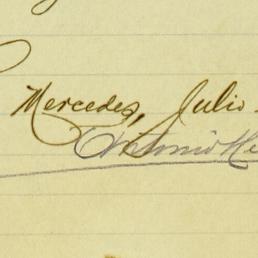 Mercedes, Julio
Antonio He